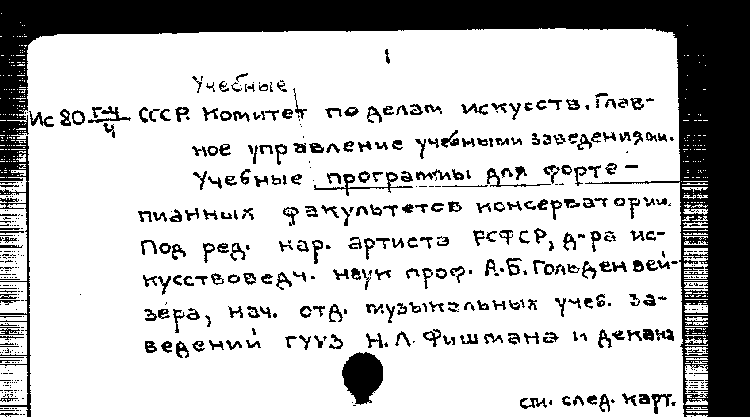 1
Учебные
Ис 80 Г-4/4 СССР. Комитет по делам искусств. Глав-
ное управление учебными заведениями.
Учебные программы для форте-
пианных факультетов консерватории.
Под ред. нар. артиста РСФСР, д-ра ис-
кусствоведч. наук проф. А.Б. Гольденвей-
зера, нач. отд. музыкальных учеб. за-
ведений ГУУЗ Н.Л. Фишмана и декана
см. след. карт.